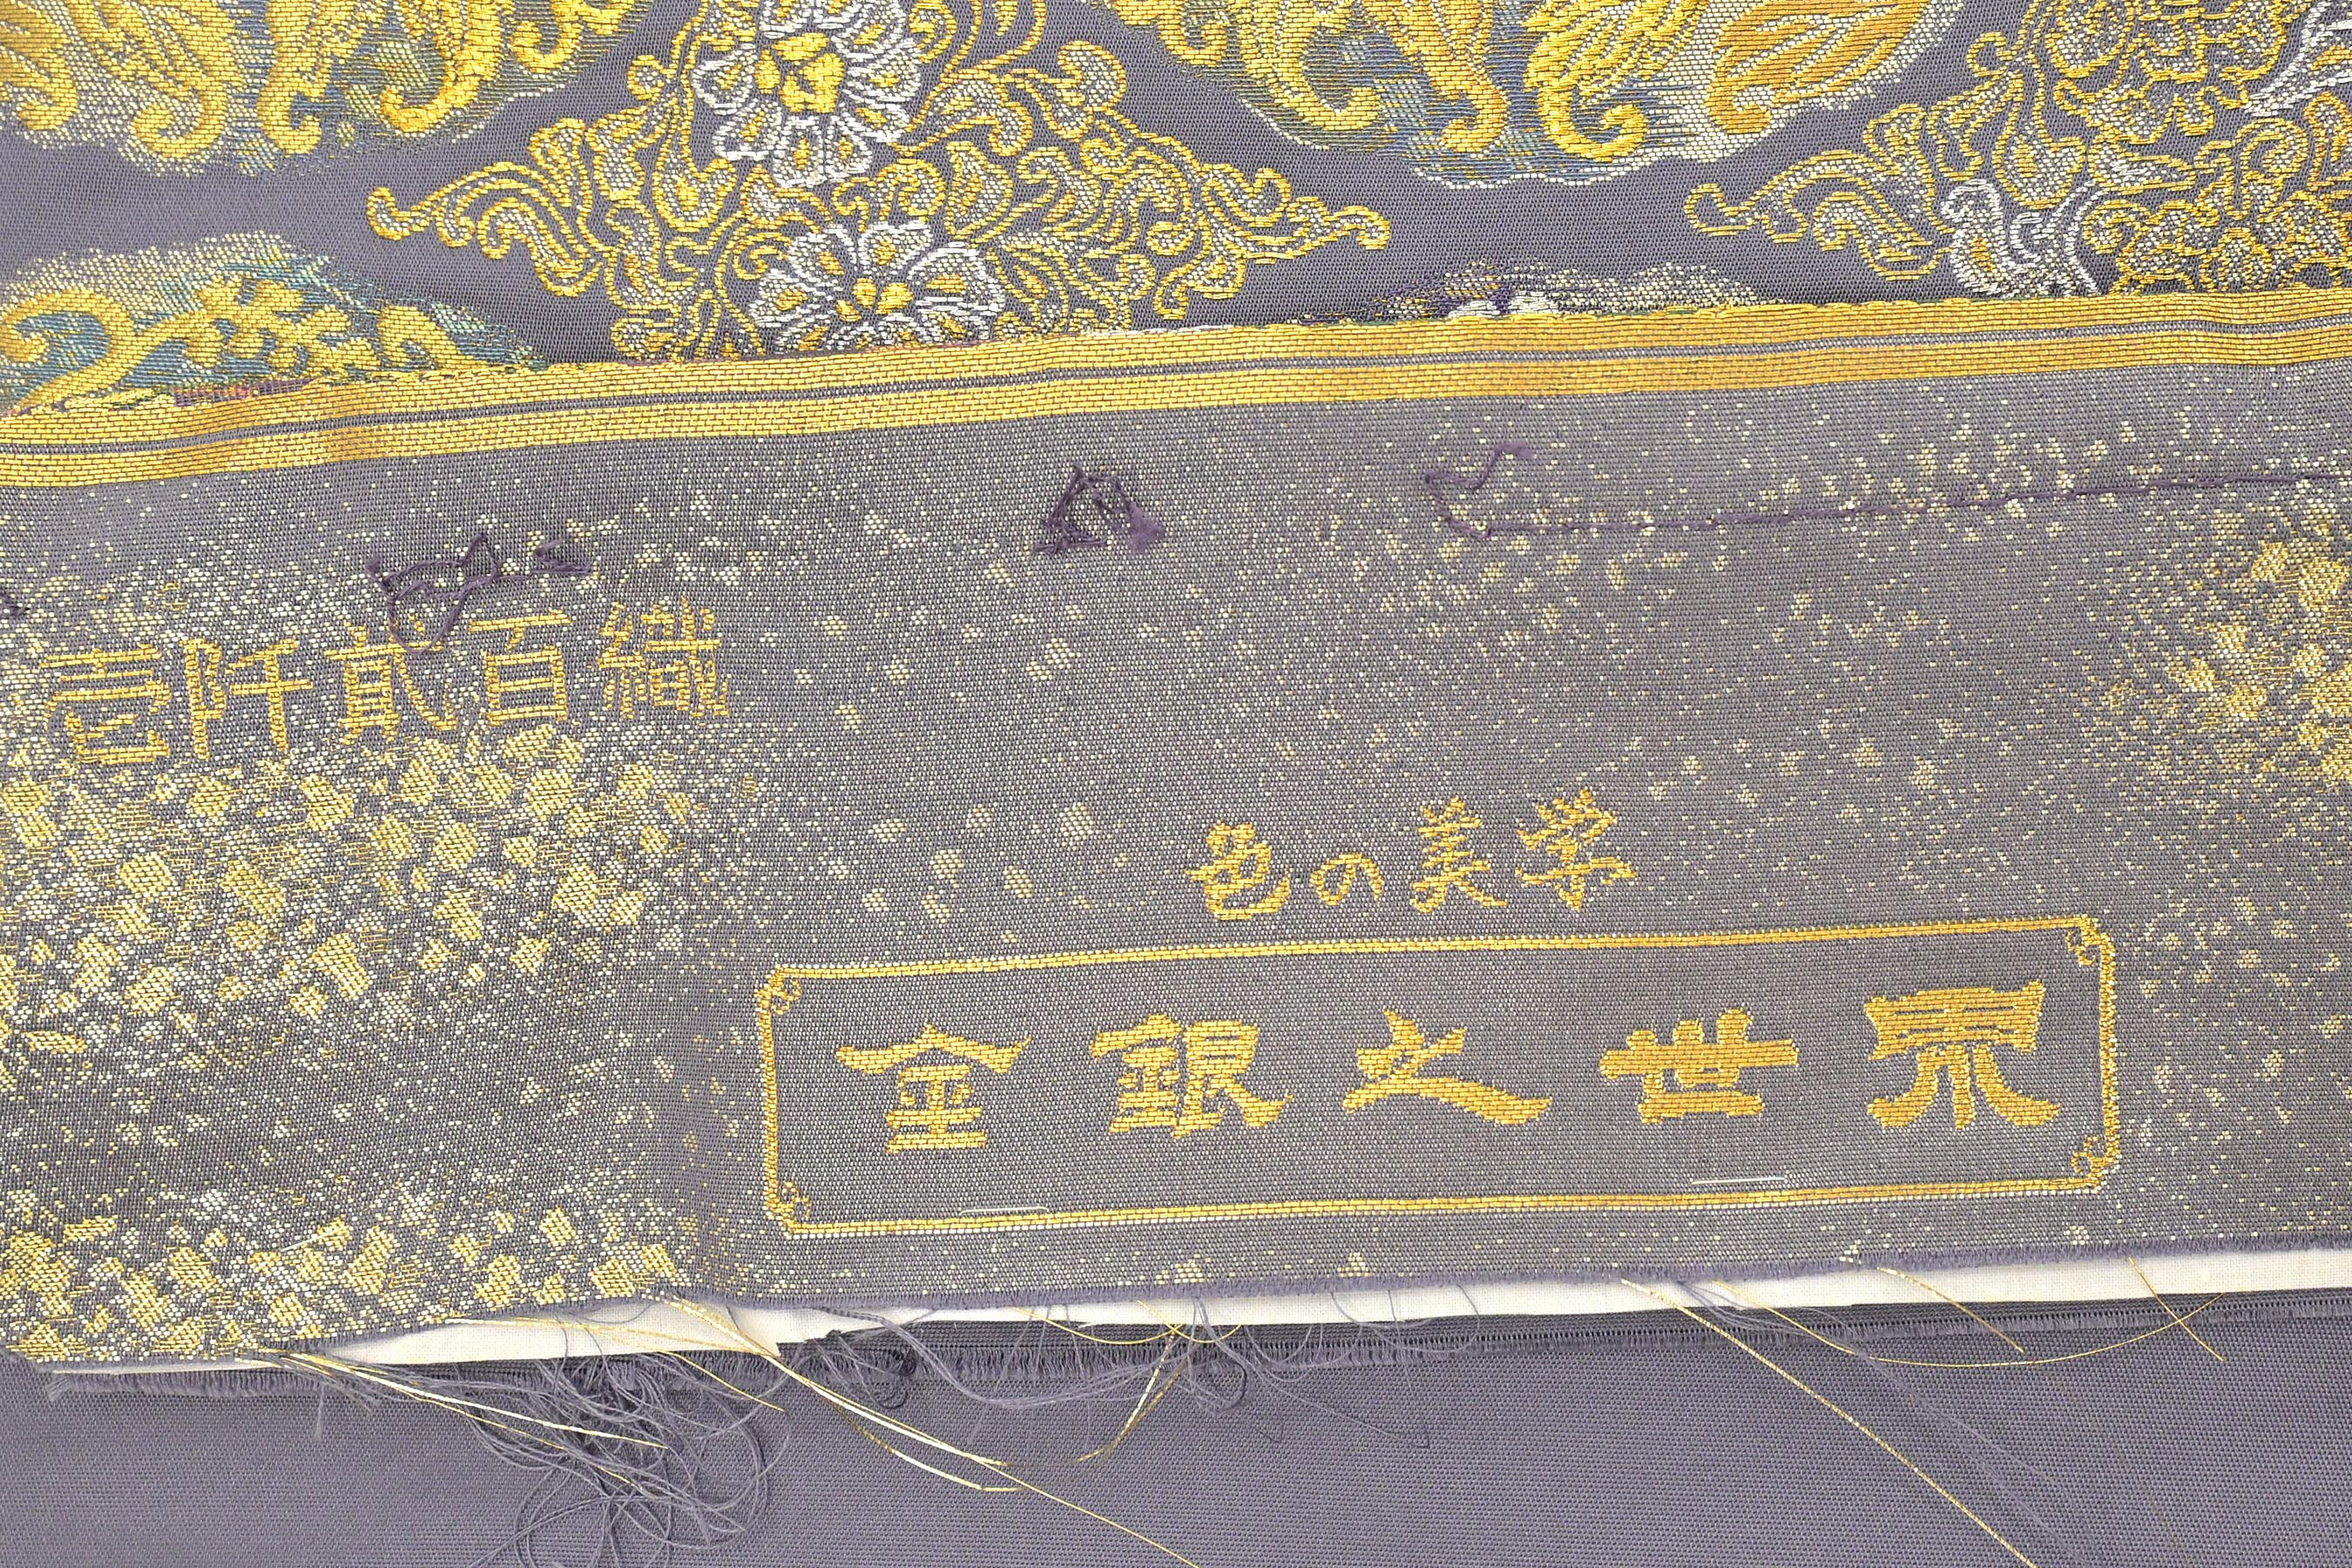 壱阡貮百織
色の美学
金銀之世界